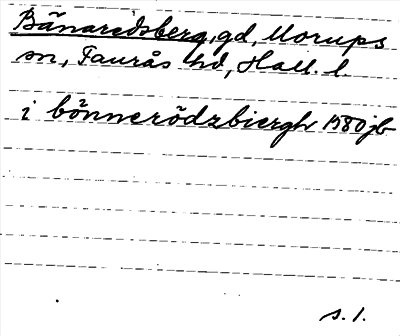 Bänarödsberg, gd, Morups
sn, Faurås hd, Hall. l.
i bönnerödzbiergh 1580 jb
s. 1.